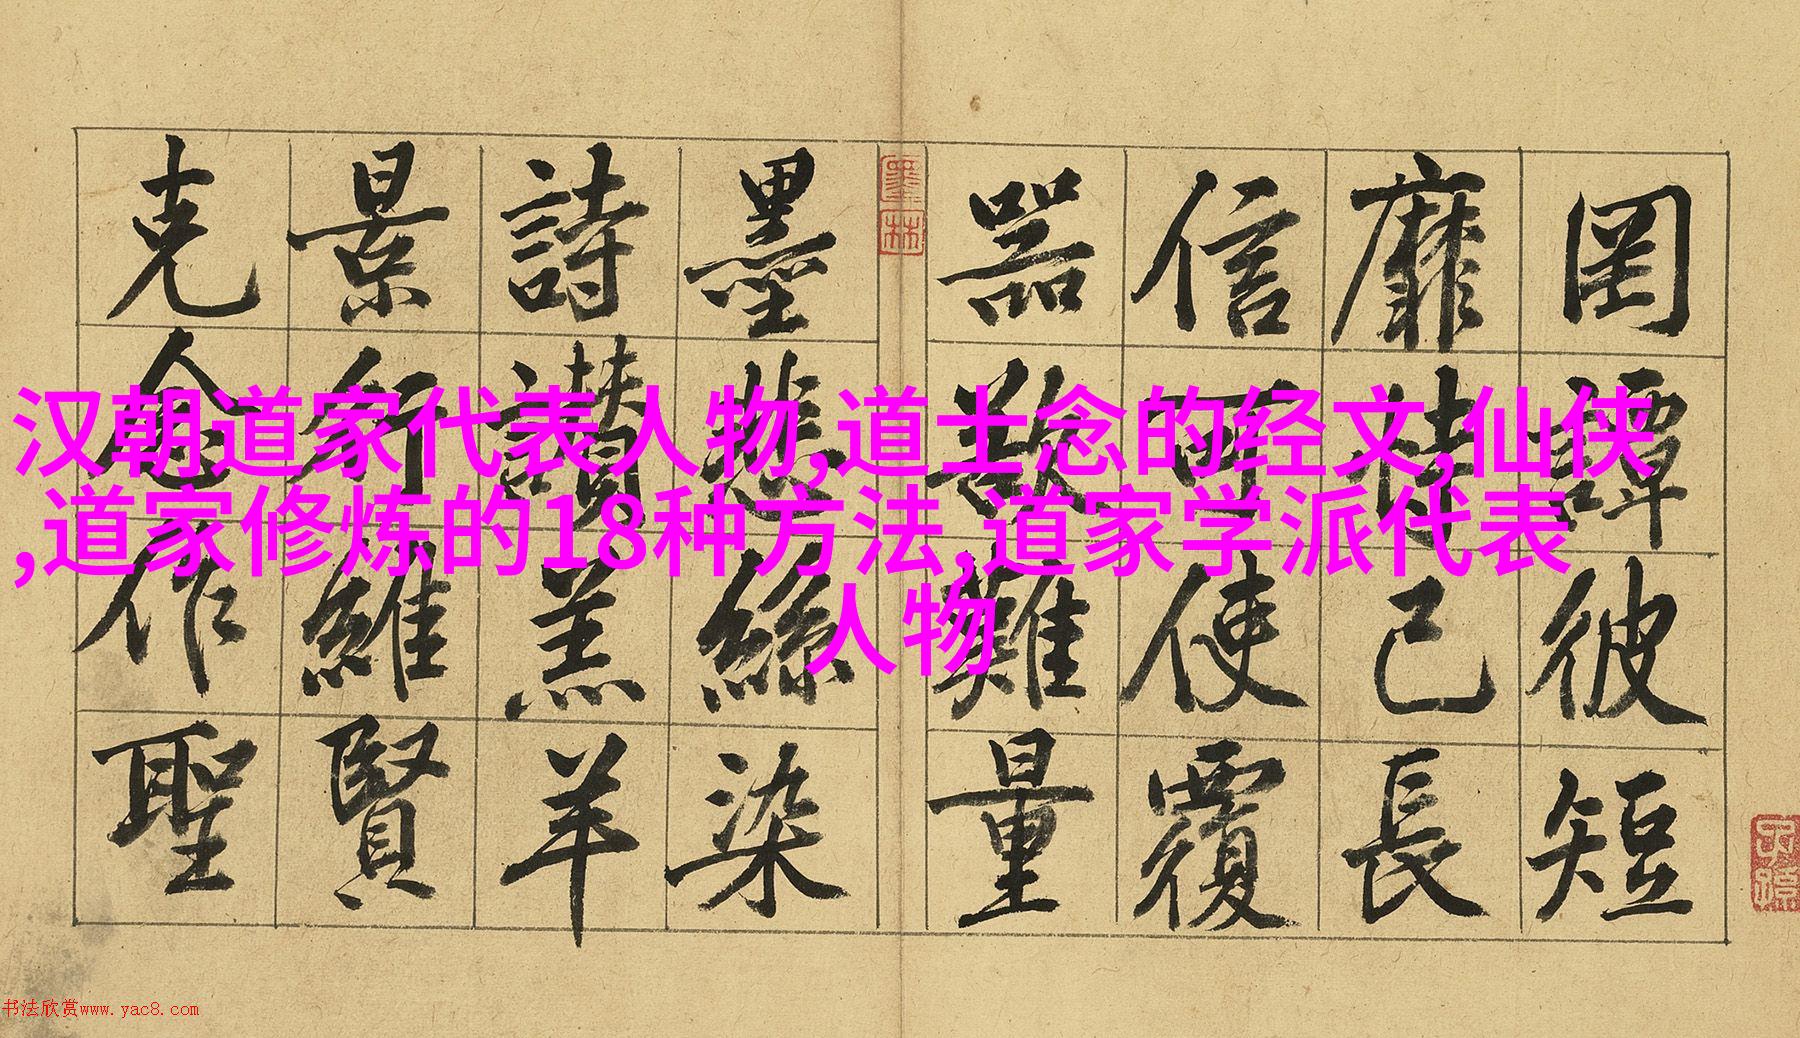 罔談彼短
靡恃己長
信可使覆
器欲難量
墨悲絲染
詩讚羔羊
景行維賢
克念作聖
墨林
汉朝道家代表人物,道士念的经文,仙侠
,道家修炼的18种方法,道家学派代表
人物
书法欣赏www.yac8.com